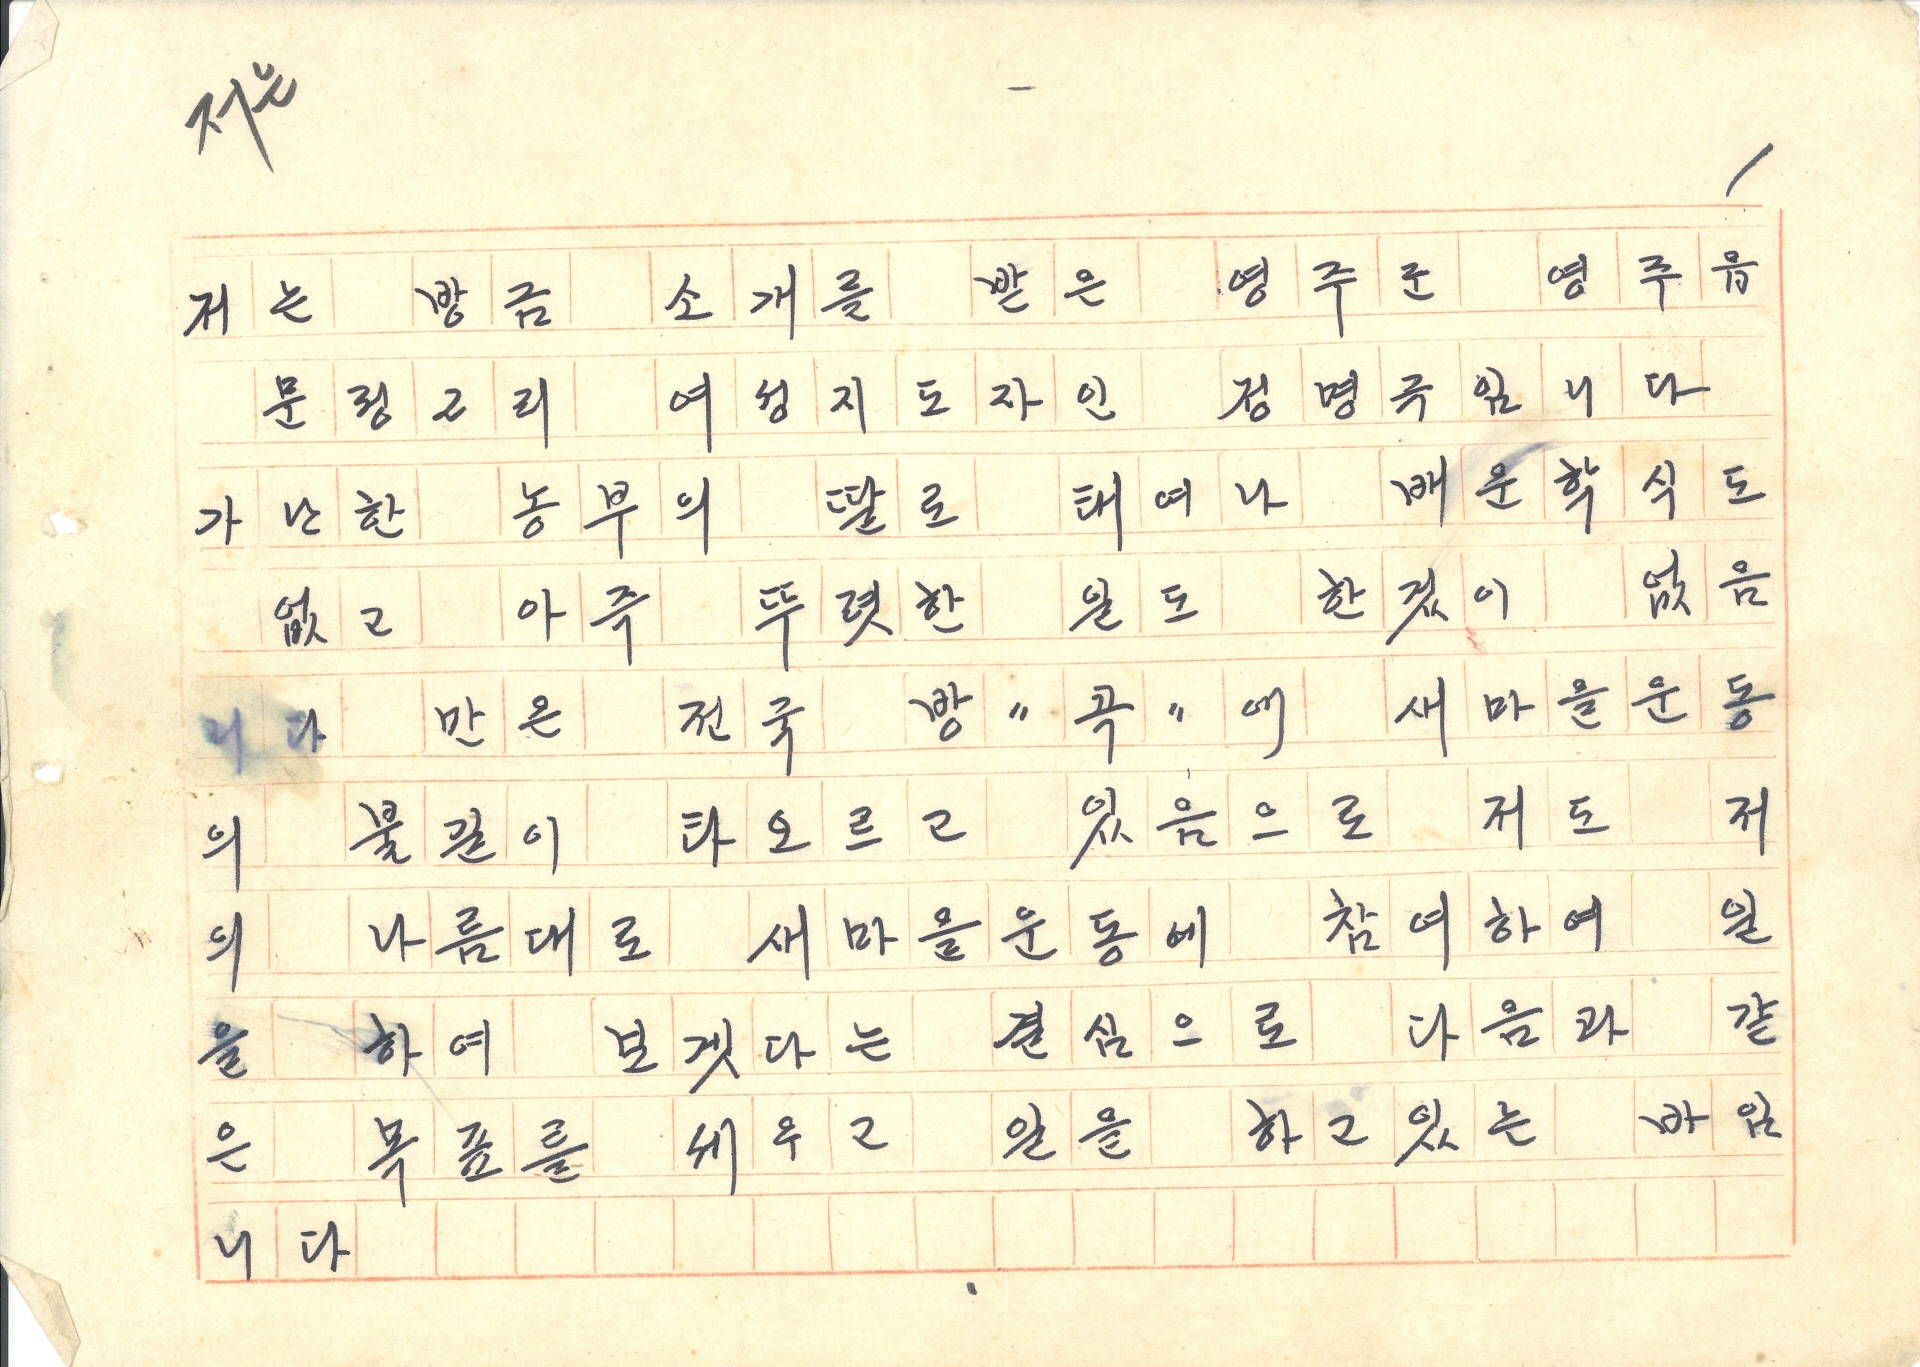 저는
1
저는 방금 소개를 받은 영주군 영주읍
문정2리 여성지도자인 정명국입니다
가난한 농부의 딸로 태여나 배운학식도
없고 아주 뚜렷한 일도 한것이 없음
니다 만은 전국 방〃곡〃에 새마을운동
의 불길이 타오르고 있음으로 저도 저
의 나름대로 새마을운동에 참여하여 일
을 하여 보겟다는 결심으로 다음과 같
은 목표를 세우고 일을 하고있는 바임
니다